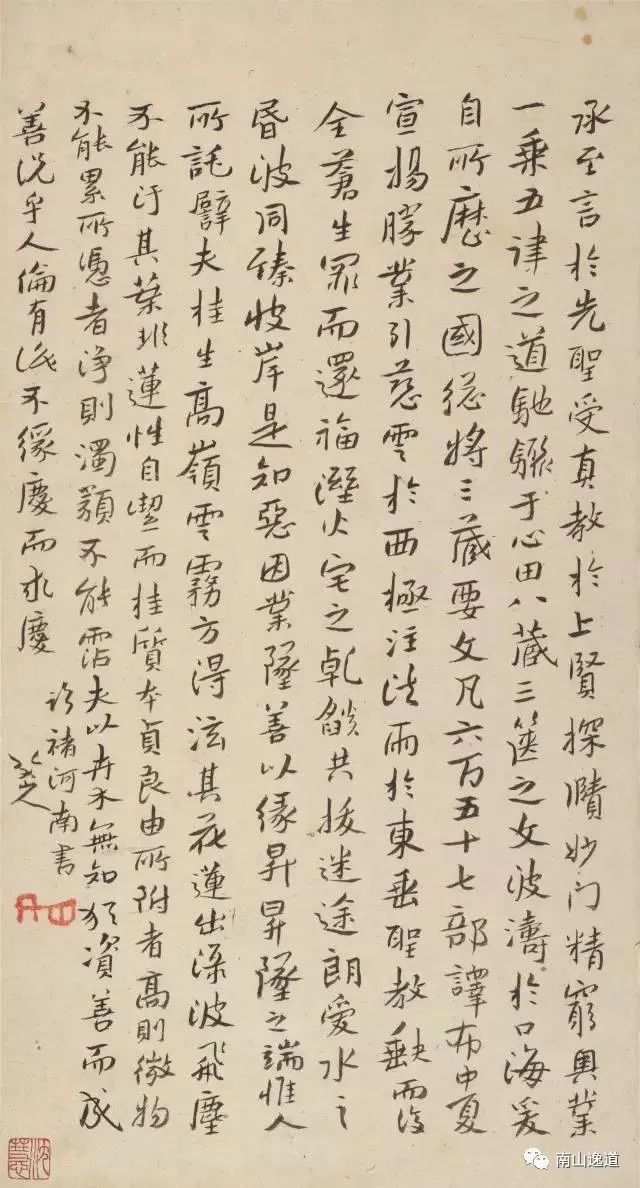 承至言於先聖受真教於上賢探賾妙门精窮奥業
一乘五律之道馳驟于心田八藏三篋之文波濤於口海爰
自所歷之國総將三藏要文凡六百五十七部譯布中夏
宣揚勝業引慈雲於西極注法雨於東垂聖教缺而復
全蒼生罪而還福溼火宅之乾燄共拔迷途朗愛水之
昏波同臻彼岸是知惡因業墜善以緣昇昇墜之端惟人
所託譬夫桂生高嶺雲霧方得泫其花蓮出渌波飛塵
不能汙其葉非蓮性自潔而桂質本貞良由所附者高則微物
不能累所憑者淨則濁類不能霑夫以卉木無知猶資善而成
善況乎人倫有識不緣慶而求慶
臨褚河南書
八大山人
南山逸道